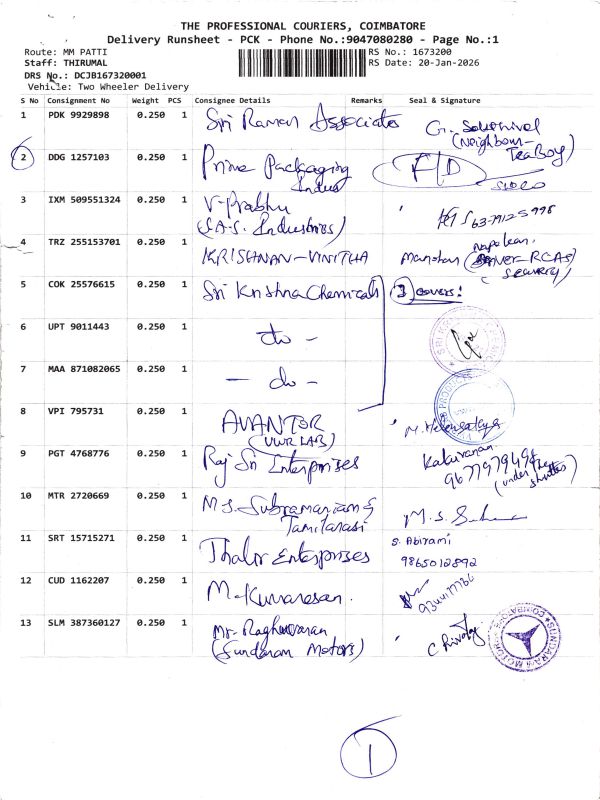 THE PROFESSIONAL COURIERS, COIMBATORE
Delivery Runsheet - PCK - Phone No.:9047080280 - Page No.:1
Route: MM PATTI
RS No.: 1673200
Staff: THIRUMAL
RS Date: 20-Jan-2026
DRS No.: DCJB167320001
Vehicle: Two Wheeler Delivery
S No Consignment No Weight PCS Consignee Details Remarks Seal & Signature
1 PDK 9929898 0.250 1 Sri Raman Associates
(Neighbour-
TeaBoy)
2 DDG 1257103 0.250 1 Prime Packaging F/D
Indus
3 IXM 509551324 0.250 1 V-Prabhu
(S.A.S. Industries)
4 TRZ 255153701 0.250 1 KRISHNAN-VINITHA
Napolean.
RCAS)
(Security)
5 COK 25576615 0.250 1 Sri Krishna Chemicals 3 covers:
6 UPT 9011443 0.250 1 do -
7 MAA 871082065 0.250 1 - do -
8 VPI 795731 0.250 1 AVANTOR
(VWR LAB)
9 PGT 4768776 0.250 1 Raj Sri Enterprises
(under the
shutter)
10 MTR 2720669 0.250 1 M.S. Subramaniam &
Tamilarasi
11 SRT 15715271 0.250 1 Thalir Enterprises S. Abirami
9865012892
12 CUD 1162207 0.250 1 M-Kumaresan.
13 SLM 387360127 0.250 1 Mr-Raghuraman
(Sundaram Motors)
SUNDARAM MOTORS
COIMBATORE
1